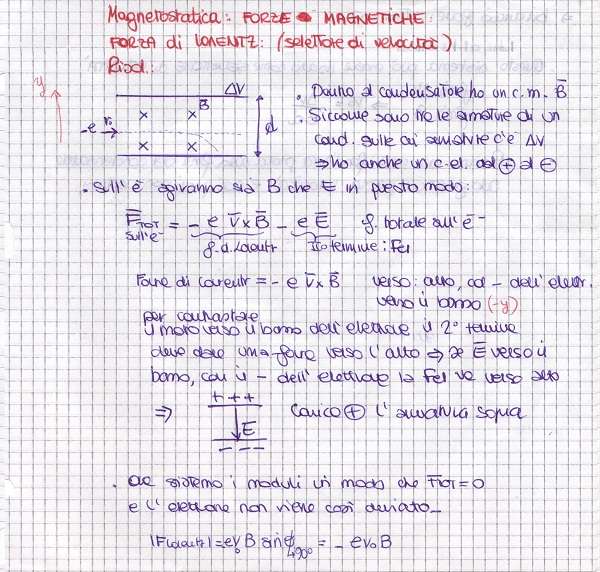 Magnetostatica: FORZE MAGNETICHE
FORZA di LORENTZ: (selettore di velocità)
Risol.:
y
ΔV
B̄
-e v̄₀
d
• Dentro al condensatore ho un c.m. B̄
• Siccome sono tra le armature di un
cond. sulle cui armature c'è ΔV
⇒ ho anche un c.el. dal ⊕ al ⊖
• Sull'ē agiranno sia B che E in questo modo:
F̄TOT = - e v̄ x B̄ - e Ē f. totale sull'e⁻
sull'e⁻
f. di Lorentz IIo termine: Fel
Forze di Lorentz = - e v̄ x B̄ verso: alto, col - dell'elettr.
verso il basso (-y)
per contrastare
il moto verso il basso dell'elettrone il 2° termine
deve dare una forza verso l'alto ⇒ se Ē verso il
basso, con il - dell'elettrone la Fel va verso alto
+ + +
⇒ E Carico ⊕ l'armatura sopra
- - -
• Ora sistemo i moduli in modo che F̄TOT = 0
e l'elettrone non viene così deviato
|F Lorentz| = e v₀ B sinϕ = - e v₀ B
↳ 90°